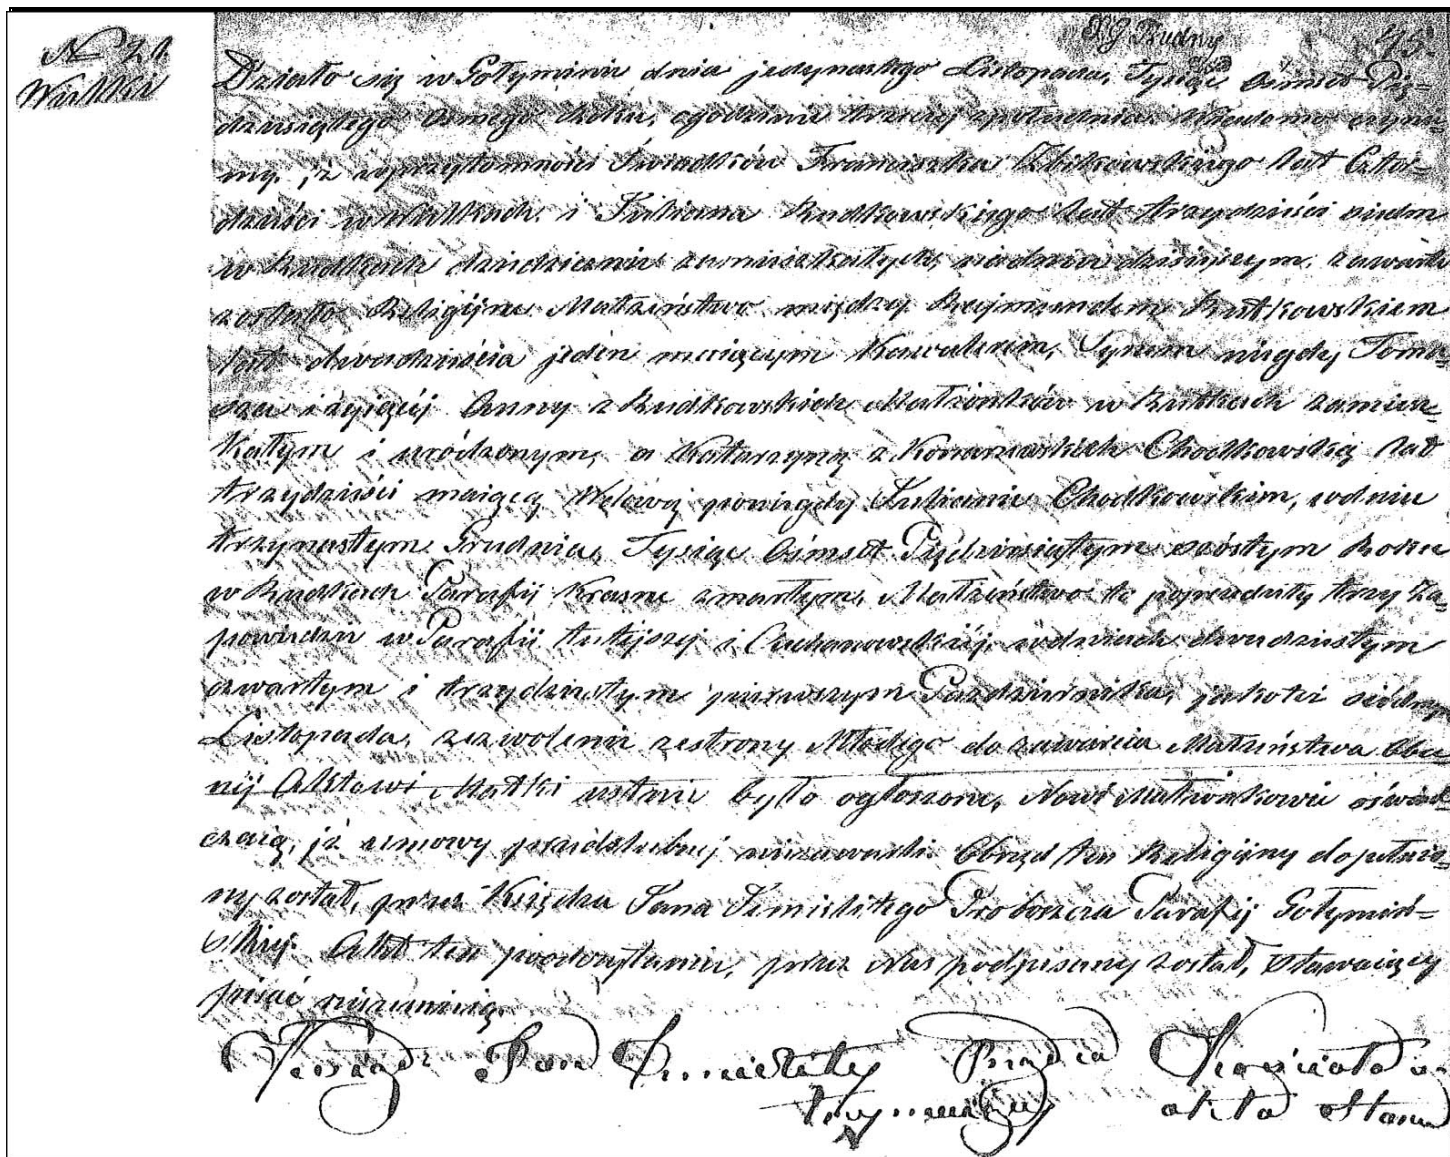 N 21.
Watkki
X G Trudny
45.
Działo się w Gołyminie dnia jedynastego Listopada, Tysiąc Ośmset Pię-
dziesiątego Osmego Roku, o godzinie trzeciej z południa. Wiadomo czyni-
my, iż w przytomności Świadków Franciszka Zbikowskiego lat Czter-
dzieści w Watkach i Juliana Rudkowskiego lat trzydzieści siedm
w Rudkach dziedziców zamieszkałych, na dniu dzisiejszym zawarte
zostało Religijne Małżeństwo między Rajmundem Rutkowskiem
lat dwadzieścia jeden maiącym Kawalerem, Synem niegdy Toma-
sza i żyjącej Anny z Rudkowskich Małżonków w Rutkach zamiesz-
kałym i urodzonym, a Katarzyną z Konarzewskich Chodkowską lat
trzydzieści maiącą Wdową po niegdy Julianie Chodkowskim, w dniu
trzynastym Grudnia, Tysiąc Ośmset Piędziesiątym szóstym Roku
w Rudkach Parafij Krasne zmarłym. Małżeństwo to poprzedziły trzy Za-
powiedzi w Parafij tutejszej i Ciechanowskiej w dniach dwudziestym
czwartym i trzydziestym pierwszym Października, jakoteż siódmym
Listopada, zezwolenie ze strony Młodego do zawarcia Małżeństwa Obec-
nej Aktowi Matki ustnie było ogłoszone, Nowi Małżonkowie oświad-
czają, iż umowy przedślubnej nie zawarli. Obrząd ten Religijny dopełnio-
ny został, przez Księdza Jana Proboszcza Parafij Gołymiń-
skiej. Akt ten po odczytaniu, przez Nas podpisany został, Stawaiący
pisać nieumieią.
Xiądz Jan Rządca Kościoła
Gołymiński akta Stanu